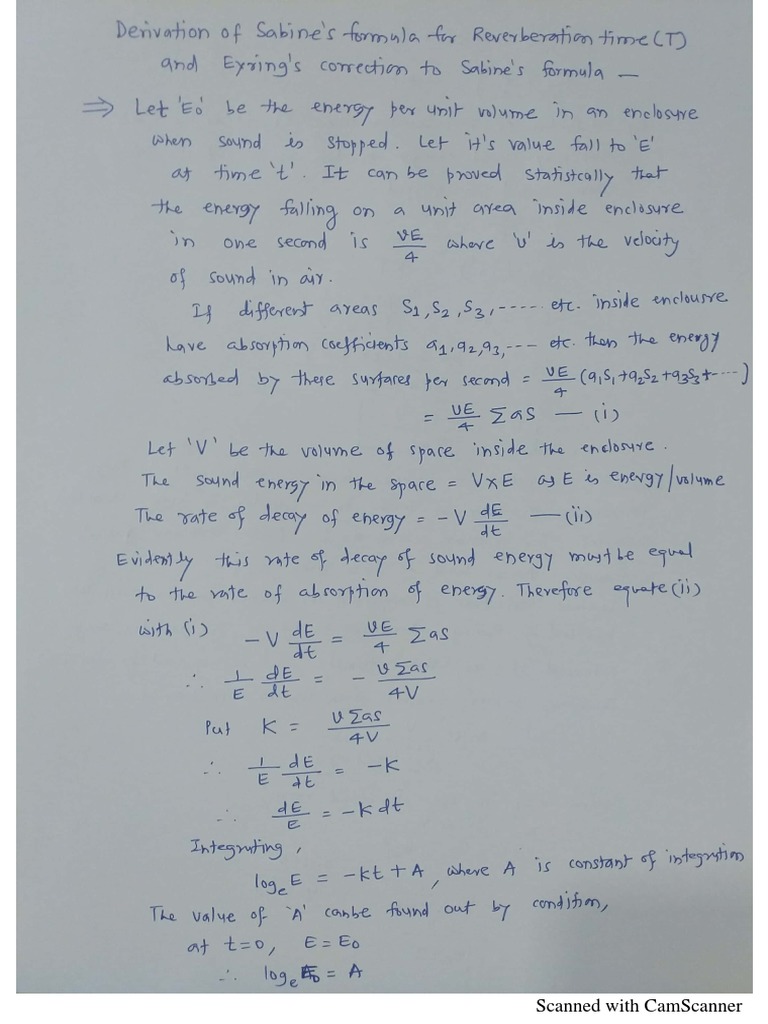 Derivation of Sabine's formula for Reverberation time (T)
and Exring's correction to Sabine's formula —
⇒ Let 'E₀' be the energy per unit volume in an enclosure
when sound is stopped. Let it's value fall to 'E'
at time 't'. It can be proved statistcally that
the energy falling on a unit area inside enclosure
in one second is vE/4 where 'v' is the velocity
of sound in air.
If different areas S₁, S₂, S₃, ----- etc. inside enclousre
have absorption coefficients a₁, a₂, a₃, --- etc. then the energy
absorbed by these surfaces per second = vE/4 (a₁S₁+a₂S₂+a₃S₃+---)
= vE/4 ΣaS — (i)
Let 'V' be the volume of space inside the enclosure.
The sound energy in the space = V×E as E is energy/volume
The rate of decay of energy = -V dE/dt — (ii)
Evidently this rate of decay of sound energy must be equal
to the rate of absorption of energy. Therefore equate (ii)
with (i) -V dE/dt = vE/4 ΣaS
∴ 1/E dE/dt = - vΣas/4V
Put K = vΣas/4V
∴ 1/E dE/dt = -K
∴ dE/E = -K dt
Integrating,
logₑE = -kt + A, where A is constant of integration
The value of 'A' canbe found out by condition,
at t=0, E=E₀
∴ logₑE₀ = A
Scanned with CamScanner